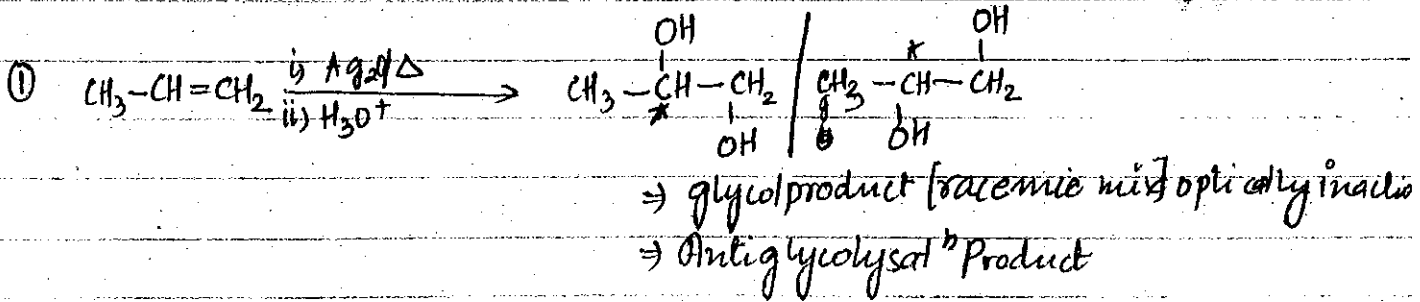 ① CH₃–CH=CH₂ i) Ag₂O/Δ ii) H₃O⁺ → CH₃–CH–CH₂ / CH₃–CH–CH₂
OH OH
* *
OH OH
⇒ glycol product [racemic mix] optically inactiv
⇒ Antiglycolysatⁿ Product